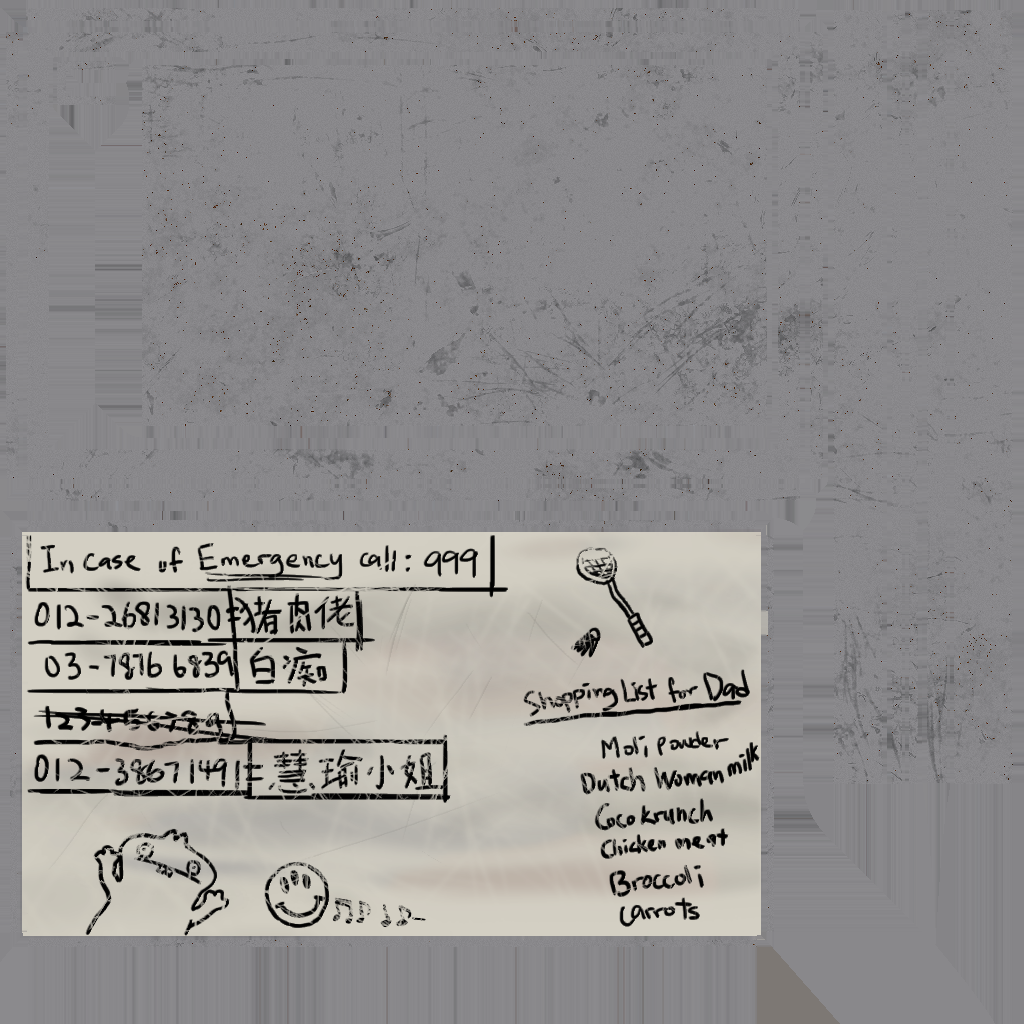 In case of Emergency call: 999
012-26813130=猪肉佬
03-7876 6839 白痴
123456789
012-38671491=慧瑜小姐
Shopping List for Dad
Moli powder
Dutch Woman milk
Coco krunch
Chicken meat
Broccoli
carrots